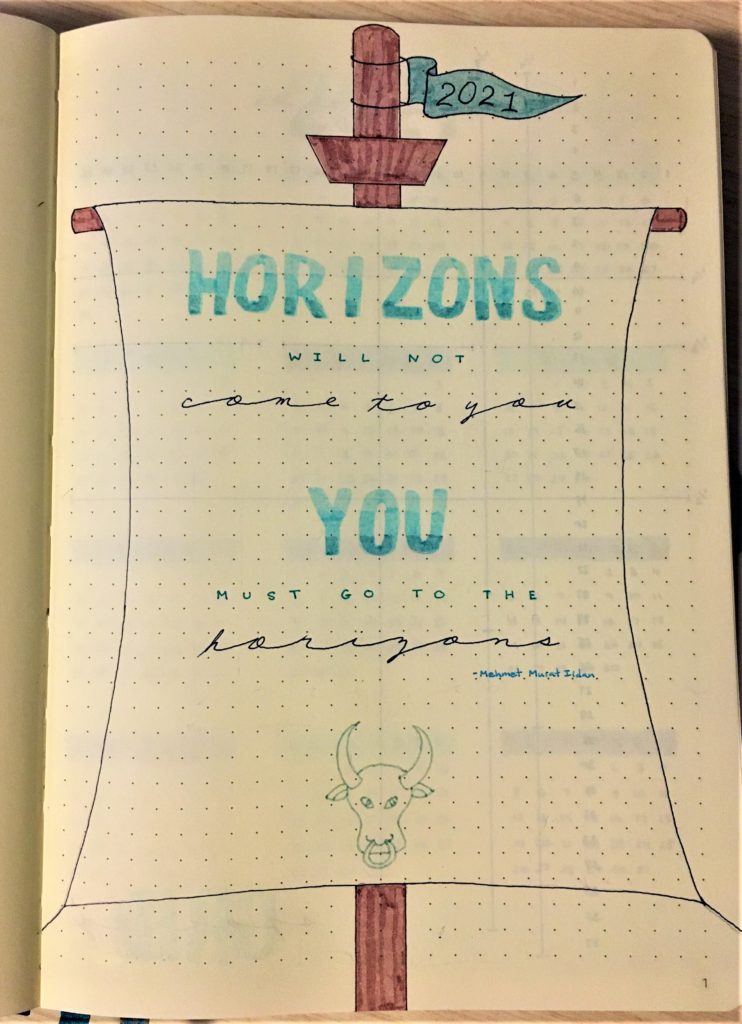 2021
HORIZONS
WILL NOT
come to you
YOU
MUST GO TO THE
horizons
-Mehmet Murat Ildan
1